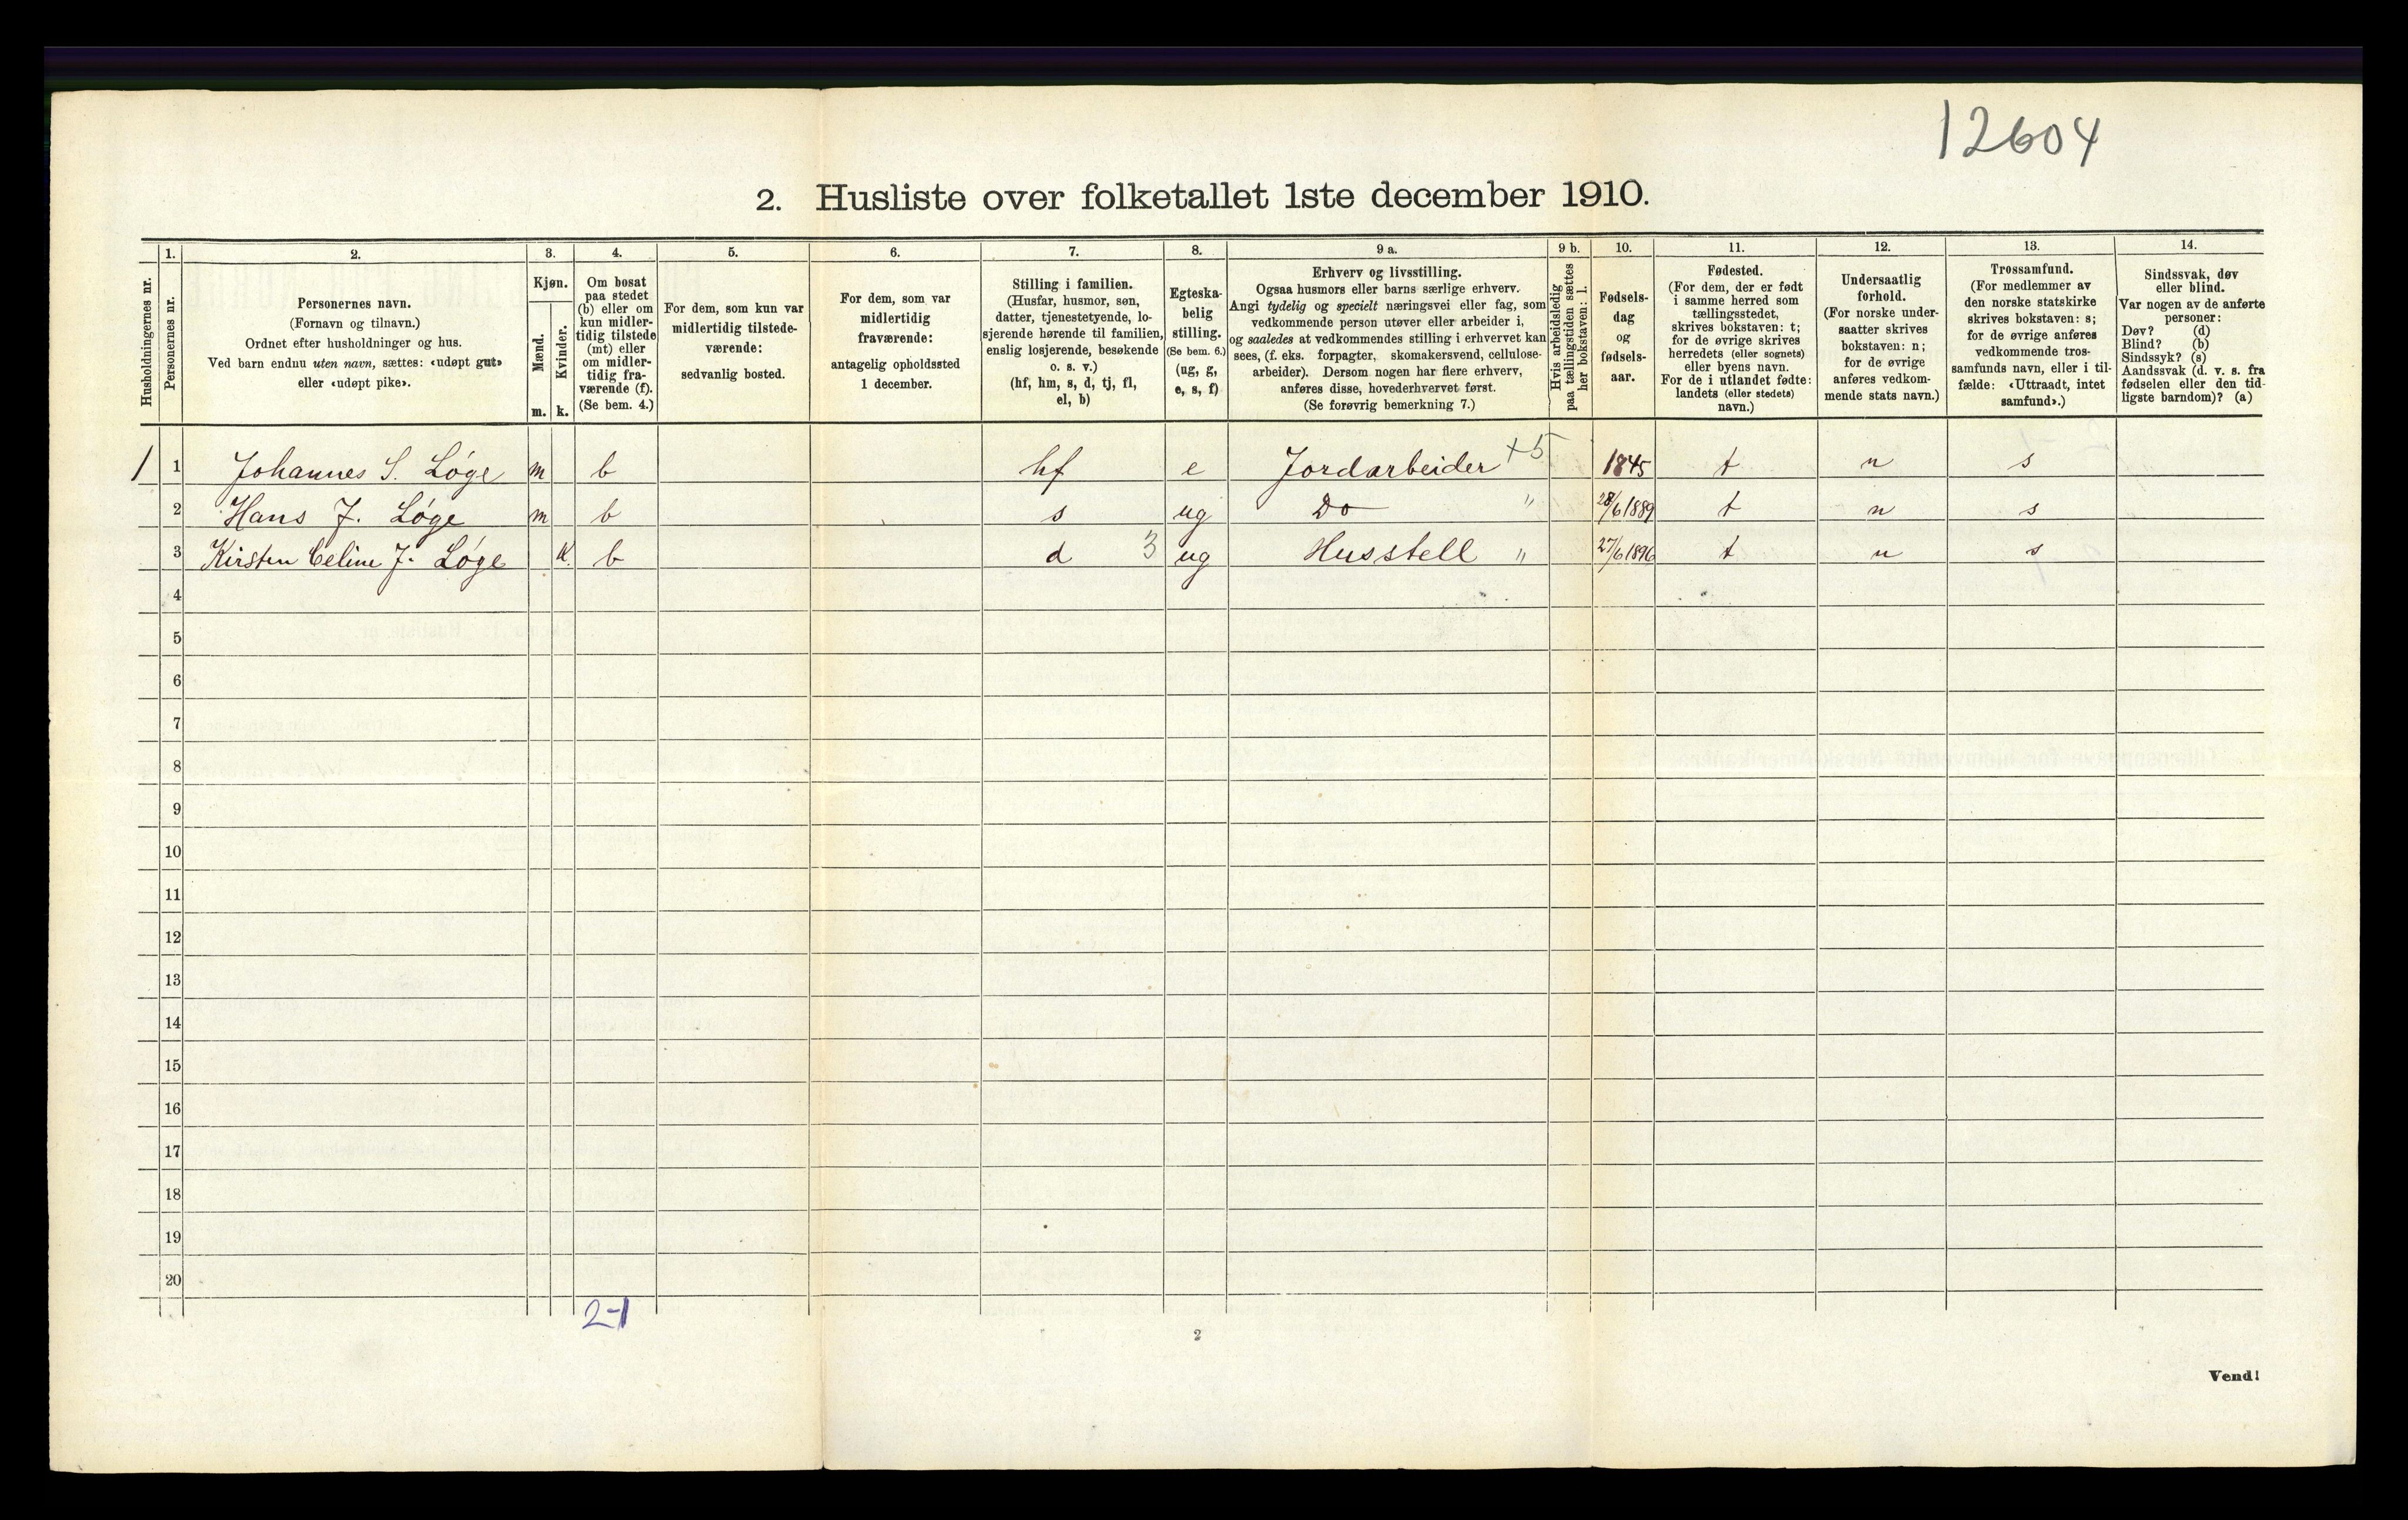 12604
2. Husliste over folketallet 1ste december 1910.
Husholdningernes nr.
1.
Personernes nr.
2.
Personernes navn.
(Fornavn og tilnavn.)
Ordnet efter husholdninger og hus.
Ved barn endnu uten navn, sættes: «udøpt gut»
eller «udøpt pike».
3.
Kjøn.
Mænd.
m.
Kvinder.
k.
4.
Om bosat
paa stedet
(b) eller om
kun midler-
tidig tilstede
(mt) eller
om midler-
tidig fra-
værende (f).
(Se bem. 4.)
5.
For dem, som kun var
midlertidig tilstede-
værende:
sedvanlig bosted.
6.
For dem, som var
midlertidig
fraværende:
antagelig opholdssted
1 december.
7.
Stilling i familien.
(Husfar, husmor, søn,
datter, tjenestetyende, lo-
sjerende hørende til familien,
enslig losjerende, besøkende
o. s. v.)
(hf, hm, s, d, tj, fl,
el, b)
8.
Egteska-
belig
stilling.
(Se bem. 6.)
(ug, g,
e, s, f)
9 a.
Erhverv og livsstilling.
Ogsaa husmors eller barns særlige erhverv.
Angi tydelig og specielt næringsvei eller fag, som
vedkommende person utøver eller arbeider i,
og saaledes at vedkommendes stilling i erhvervet kan
sees, (f. eks. forpagter, skomakersvend, cellulose-
arbeider). Dersom nogen har flere erhverv,
anføres disse, hovederhvervet først.
(Se forøvrig bemerkning 7.)
9 b.
Hvis arbeidsledig
paa tællingstiden sættes
her bokstaven: l.
10.
Fødsels-
dag
og
fødsels-
aar.
11.
Fødested.
(For dem, der er født
i samme herred som
tællingsstedet,
skrives bokstaven: t;
for de øvrige skrives
herredets (eller sognets)
eller byens navn.
For de i utlandet fødte:
landets (eller stedets)
navn.)
12.
Undersaatlig
forhold.
(For norske under-
saatter skrives
bokstaven: n;
for de øvrige
anføres vedkom-
mende stats navn.)
13.
Trossamfund.
(For medlemmer av
den norske statskirke
skrives bokstaven: s;
for de øvrige anføres
vedkommende tros-
samfunds navn, eller i til-
fælde: «Uttraadt, intet
samfund».)
14.
Sindssvak, døv
eller blind.
Var nogen av de anførte
personer:
Døv? (d)
Blind? (b)
Sindssyk? (s)
Aandssvak (d. v. s. fra
fødselen eller den tid-
ligste barndom)? (a)
1 1 Johannes S. Løge m b hf e Jordarbeider +5 1845 t n s
2 Hans J. Løge m b s ug Do " 28/6 1889 t n s
3 Kirsten Celine J. Løge k. b d 3 ug Husstell " 27/6 1896 t n s
4
5
6
7
8
9
10
11
12
13
14
15
16
17
18
19
20
2-1
2
Vend!